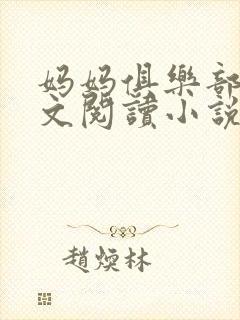 妈妈俱樂部
文閱讀小說
趙煐林